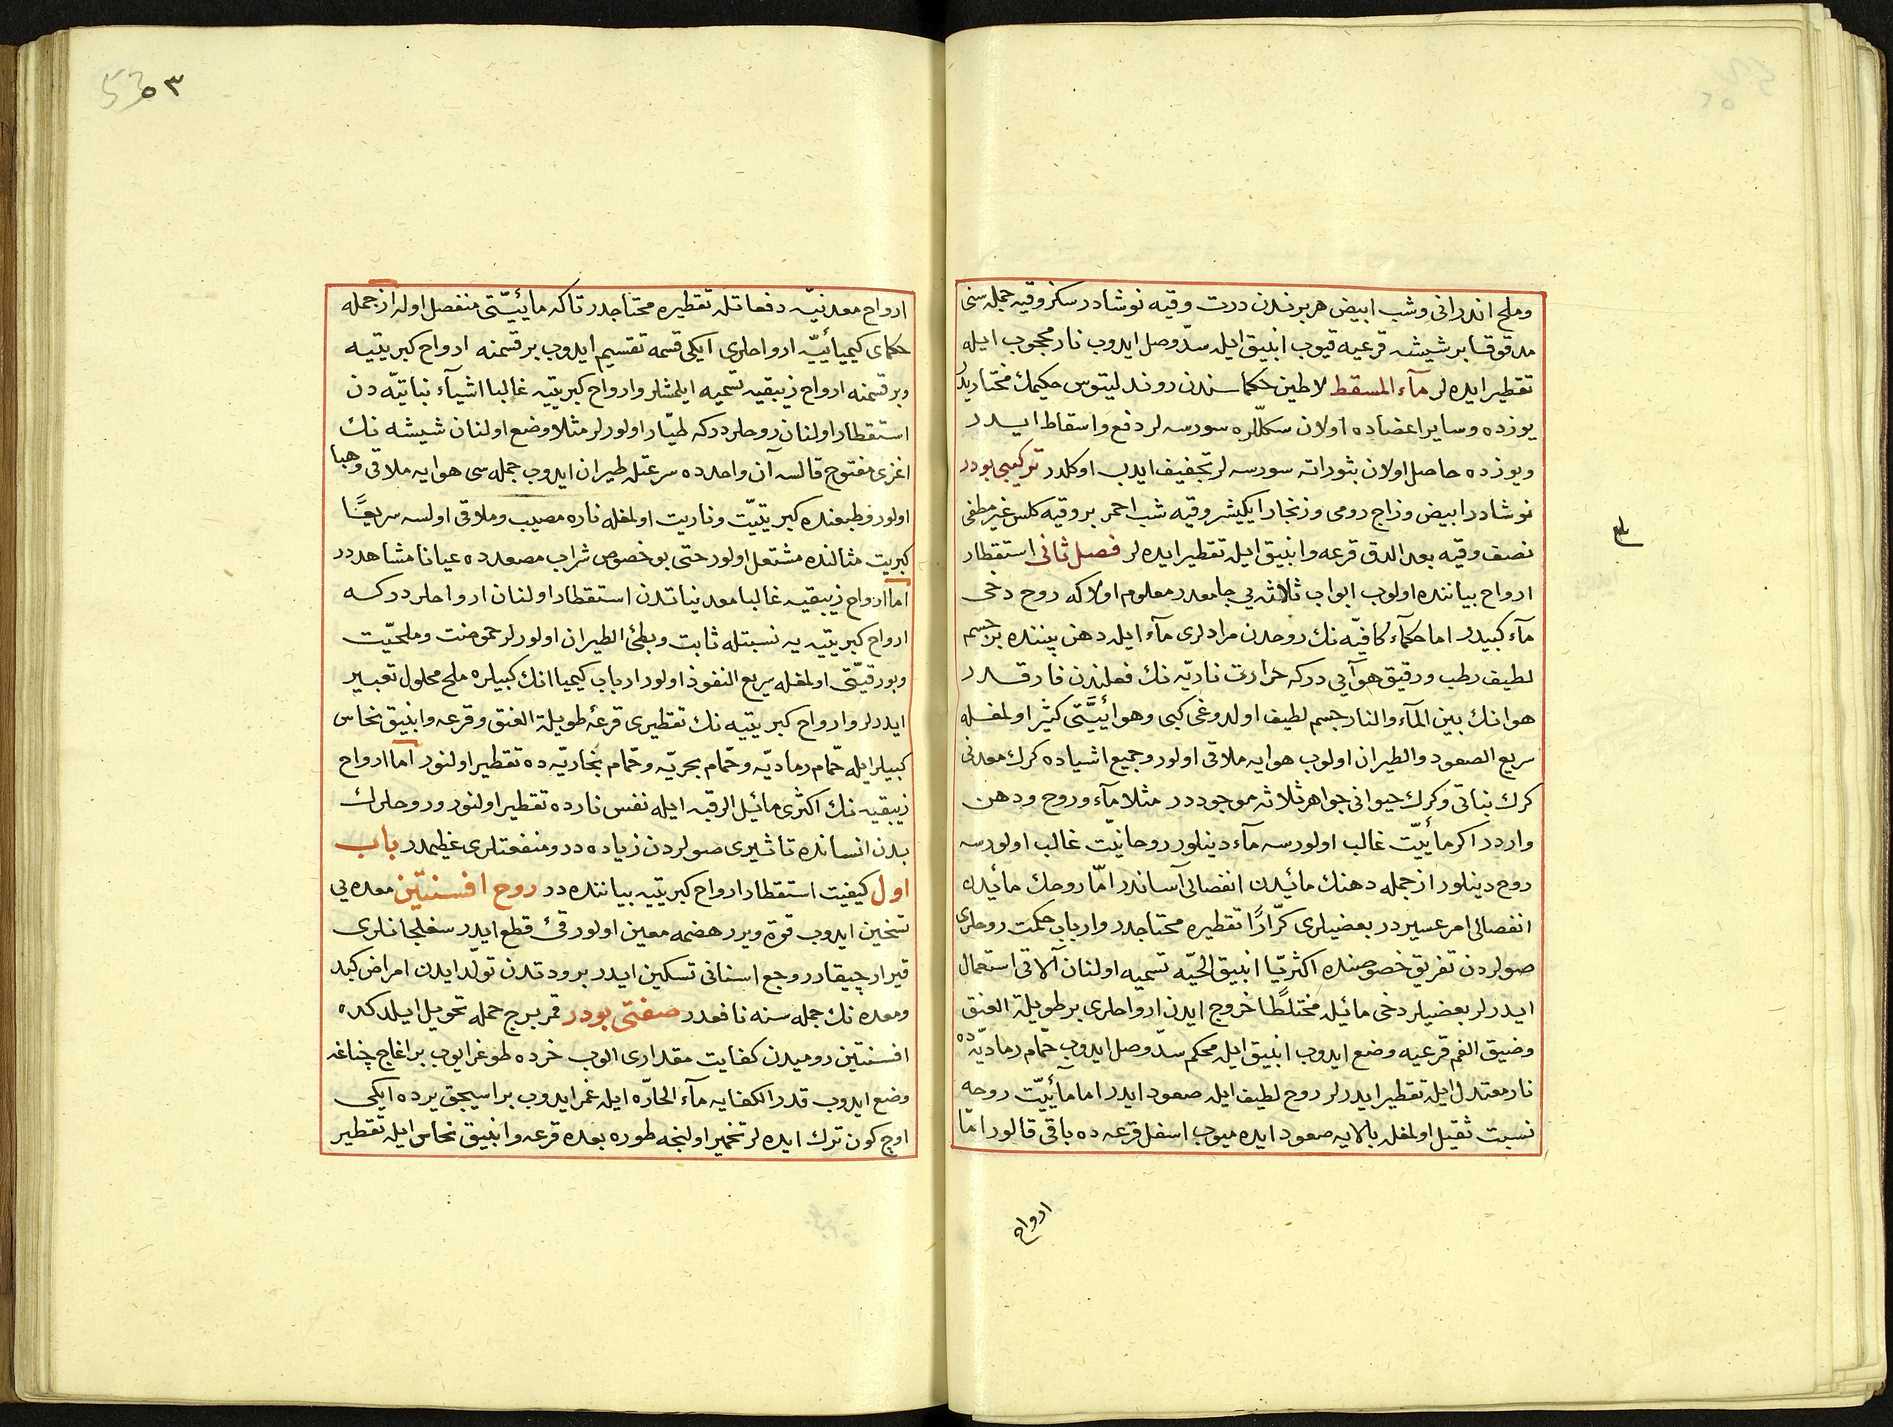 وملح اندرانی وشب ابیض هر برندن درت وقیه نوشادر سکز وقیه جمله سنی
مدقوقا بر شیشه قرعیه قیوب انبیق ایله سدّ وصل ایدوب نار محجوب ایله
تقطیر ایده لر مآء المسقط لاطین حکماسندن روندلیتوس حکیمك مختاریدر
یوزده وسایر اعضاده اولان سکللره سورسه لر دفع واسقاط ایدر
ویوزده حاصل اولان بثوراته سورسه لر تجفیف ایدب اوکلدر ترکیبی بودر
نوشادر ابیض وزاج رومی وزنجار ایکیشر وقیه شب احمر بر وقیه کلس غیر مطفی
نصف وقیه بعد الدق قرعه وانبیق ایله تقطیر ایده لر فصل ثانی استقطار
ارواح بیاننده اولوب ابواب ثلاثه یی جامعدر معلوم اولا که روح دخی
مآء کبیدر اما حکمآء کافیّه نك روحدن مرادلری مآء ایله دهن بیننده بر جسم
لطیف رطب ورقیق هوآیی درکه حرارت ناریّه نك فعلندن فارقدر
هوانك بین المآء والنار جسم لطیف اولدوغی کبی وهوائیّتی کثیر اولمغله
سریع الصعود والطیران اولوب هوایه ملاقی اولور وجمیع اشیاده کرك معدنی
کرك نباتی وکرك حیوانی جواهر ثلاثه موجوددر مثلا مآء وروح ودهن
واردر اکر مائیّت غالب اولورسه مآء دینلور روحانیّت غالب اولورسه
روح دینلور ازجمله دهنك مائیدن انفصالی آساندر امّا روحك مائیدن
انفصالی امر عسیردر بعضیلری کرّارًا تقطیره محتاجدر وارباب حکمت روحلری
صولردن تفریق خصوصنده اکثریّا انبیق الحیّه تسمیه اولنان آلاتی استعمال
ایدرلر بعضیلر دخی مائیله مختلطًا خروج ایدن ارواحلری بر طویلة العنق
وضیق الفم قرعیه وضع ایدوب انبیق ایله محکم سدّ وصل ایدوب حمّام رمادیّه ده
نار معتدل ایله تقطیر ایدرلر روح لطیف ایله صعود ایدر اما مآئیّت روحه
نسبت ثقیل اولمغله بالایه صعود ایده میوب اسفل قرعه ده باقی قالور امّا
ارواح
٥٣
53
ارواح معدنیّه دفعاتله تقطیره محتاجدر تاکه مائیّتی منفصل اوله ازجمله
حکمای کیمیائیّه ارواحلری ایکی قسمه تقسیم ایدوب بر قسمنه ارواح کبریتیه
وبر قسمنه ارواح زیبقیه تسمیه ایلمشلر وارواح کبریتیه غالبا اشیآء نباتیّه دن
استقطار اولنان روحلردرکه طیّار اولورلر مثلا وضع اولنان شیشه نك
اغزی مفتوح قالسه آن واحدده سرعتله طیران ایدوب جمله سی هوایه ملاقی وهبا
اولور وطبعنده کبریتیّت وناریت اولمغله ناره مصیب وملاقی اولسه سریعًا
کبریت مثالنده مشتعل اولور حتی بو خصوص شراب مصعدده عیانا مشاهددر
اما ارواح زیبقیه غالبا معدنیاتدن استقطار اولنان ارواحلردرکه
ارواح کبریتیه یه نسبتله ثابت وبطئ الطیران اولورلر حموضت وملحیّت
وبورقیّتی اولمغله سریع النفوذ اولور ارباب کیمیا انك کبیلره ملح محلول تعبیر
ایدرلر وارواح کبریتیه نك تقطیری قرعۀ طویلة العنق وقرعه وانبیق نحاس
کبیلر ایله حمّام رمادیّه وحمّام بحریّه وحمّام بخاریّه ده تقطیر اولنور اما ارواح
زیبقیه نك اکثری مائیل الرقبه ایله نفس نارده تقطیر اولنور وروحلرك
بدن انسانده تأثیری صولردن زیاده در ومنفعتلری عظیمدر باب
اول کیفیت استقطار ارواح کبریتیه بیاننده در روح افسنتین معده یی
تسخین ایدوب قوة ویرر هضمه معین اولور قئ قطع ایدر سغلجانلری
قیرار چیقادر وجع اسنانی تسکین ایدر برودتدن تولّد ایدن امراض کبد
ومعده نك جمله سنه نافعدر صفتی بودر قمر برج حمله تحویل ایلدکده
افسنتین رومیدن کفایت مقداری الوب خرده طوغرایوب بر اغاج چناغه
وضع ایدوب قدر الکفایه مآء الحارّه ایله غمر ایدوب بر اسیجق یرده ایکی
اوچ کون ترك ایده لر تخمیر اولنجه طوره بعده قرعه وانبیق نحاس ایله تقطیر